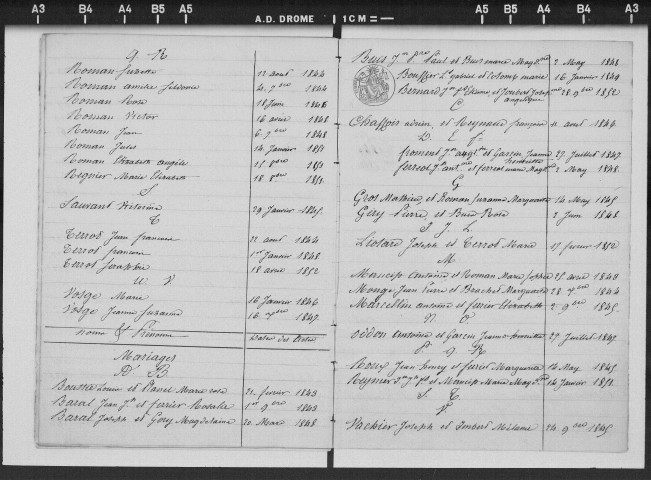 A3 B4 A4 B5 A5 A.D. DROME 1 CM A5 B5 A4 B4 A3
Q R
Roman Suzette 22 aout 1844
Roman amélie félicie 4 7bre 1844
Roman Rose 18 Juin 1846
Roman Victor 16 avril 1848
Roman Jean 6 7bre 1848
Roman Jules 14 Janvier 1851
Roman Elisabeth angèle 15 8bre 1851
Regnier Marie Elisabeth 18 8bre 1851
S
Sauvant Victorine 29 Janvier 1845
T
Terrot Jean francois 22 aout 1844
Terrot francois 1er Janvier 1848
Terrot Seraphie 18 avril 1852
U V
Vosge Marie 16 Janvier 1846
Vosge Jeanne Suzanne 16 1847
noms & Prénoms Dates des Actes
Mariages
A B
Louis et Marie rose 22 fevrier 1843
Baral Jean Jh et ferrier Rosalie 1er 9bre 1843
Baral Joseph et Gory Magdelaine 20 Mars 1848
Buis Jn Paul et Buis marie 2 May 1848
Bouffier Ls gabriel et Colomp marie 16 Janvier 1849
Bernard Jn et Joubert angelique 28 9bre 1852
C
Chaffois adrien et Reynaud françoise 11 aout 1844
D E F
froment Jn augtin et Garcin Jeanne henriette 27 Juillet 1847
ferreol Jn et ferreol marie 2 May 1848
G
Gros Mathieu et Roman Suzanne Marguerite 14 May 1845
Gery Pierre et Buis Rose 2 Juin 1848
I J L
Liotard Joseph et Terrot Marie 17 fevrier 1852
M
Mancip antoine et Roman Marie Sophie 25 avril 1843
Monge Jean Pierre et Brachet Marguerite 28 1844
Marcellin antoine et ferrier Elisabeth 2 9bre 1845
N O
oddon antoine et Garcin Jeanne henriette 27 Juillet 1847
P Q R
Roux Jean et ferrier Marguerite 14 May 1845
Reynier et Mancip Marie 14 Janvier 1852
S T
V
Vachier Joseph et Imbert Mélanie 24 9bre 1845